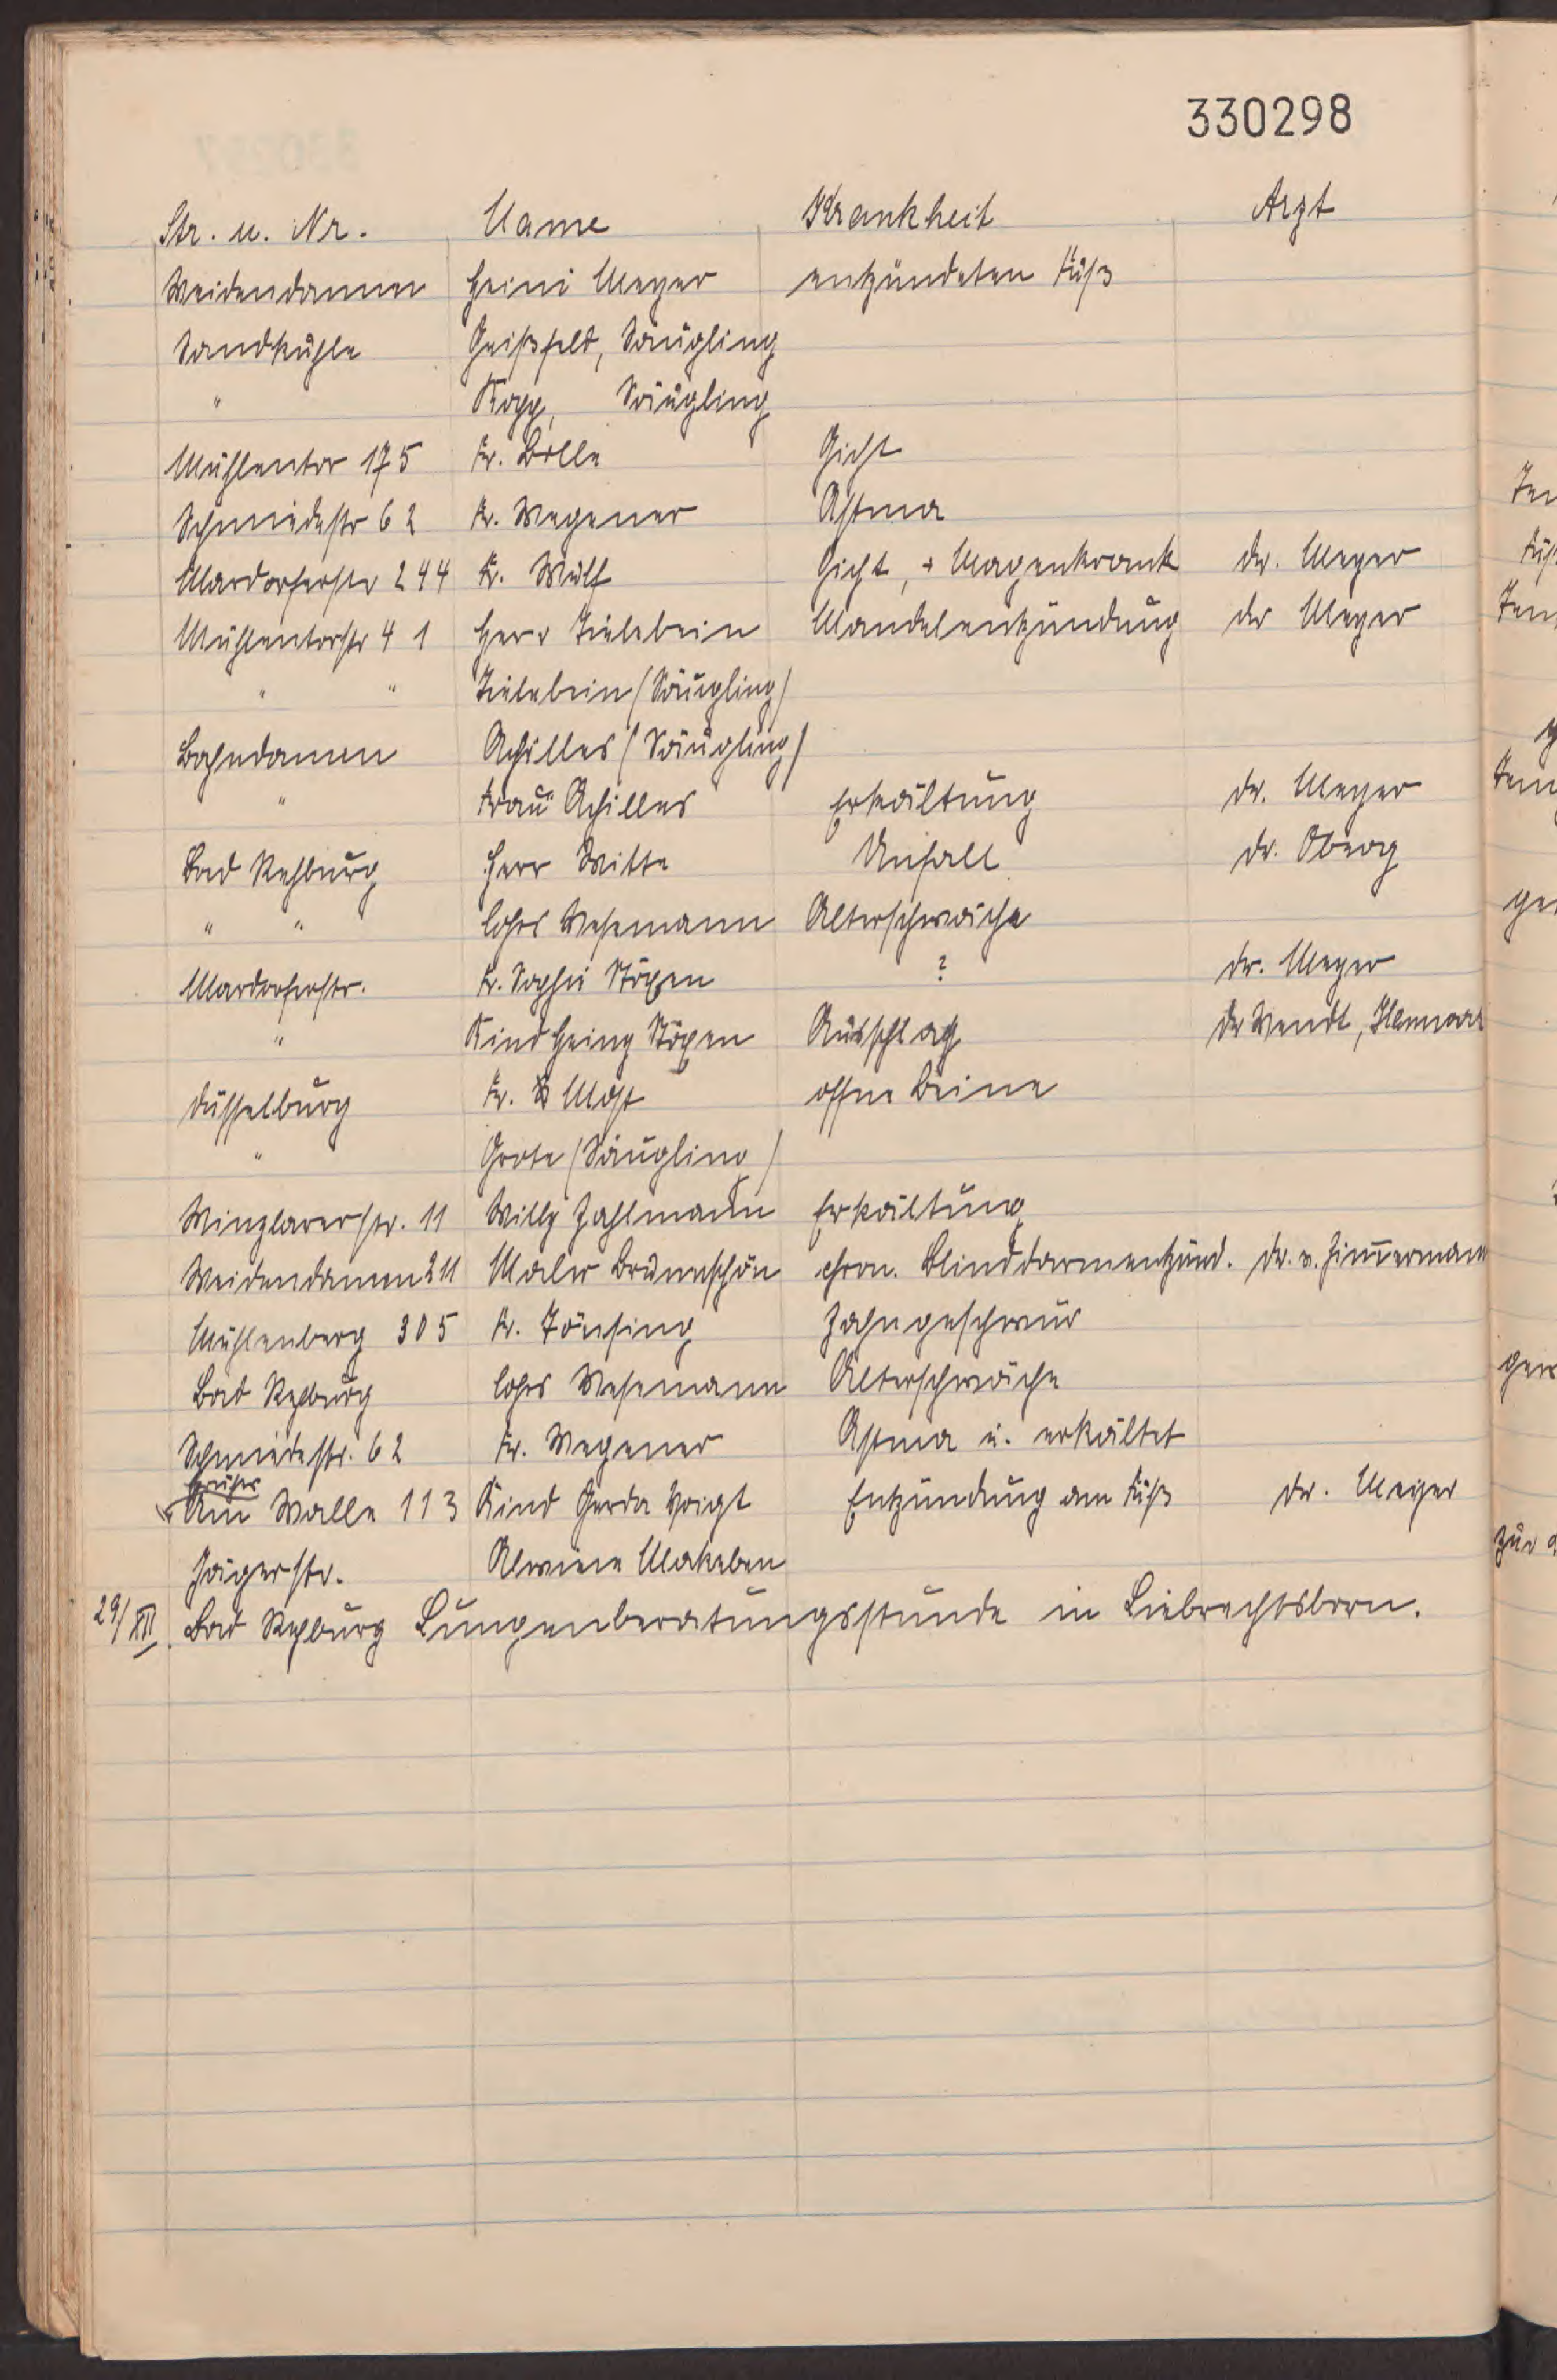 330298
Str. u. Nr. Name Krankheit Arzt
Weidendamm Heini Meyer entzündeten Fuß
Sandkuhle Geißfeld, Säugling
" Kopp, Säugling
Mühlentor 175 Fr. Bolle Gicht
Schmiedestr 62 Fr. Wegener Astma
Mardorferstr 244 Fr. Wulf Gicht, + Magenkrank Dr. Meyer
Mühlentorstr 41 Herr Zielebein Mandelentzündung Dr Meyer
" " Zielebein (Säugling)
Bahndamm Achilles (Säugling)
" Frau Achilles Erkältung Dr. Meyer
Bad Rehburg Herr Witte Unfall Dr. Oberg
" " Lohrs Wesemann Alterschwäche
Mardorferstr. Fr. Sophie Stöxen ? Dr. Meyer
" Kind Heinz Stöxen Ausschlag Dr Wendt,
Düsselburg Fr. Most offene Beine
" Grote (Säugling)
Winzlarerstr. 11 Willy Zahlmann Erkältung
Weidendamm 211 Maler Brunnschön chron. Blinddarmentzünd. Dr. v. Zimmermann
Mühlenberg 305 Fr. Tönsing Zahngeschwür
Bad Rehburg Lohrs Wesemann Alterschwäche
Schmiedestr. 62 Fr. Wegener Astma u. erkältet
früher
Am Walle 113 Kind Gerda Voigt Entzündung am Fuß Dr. Meyer
Jägerstr. Alwine Makeben
29/XII. Bad Rehburg Lungenberatungsstunde in Liebrechtsborn.